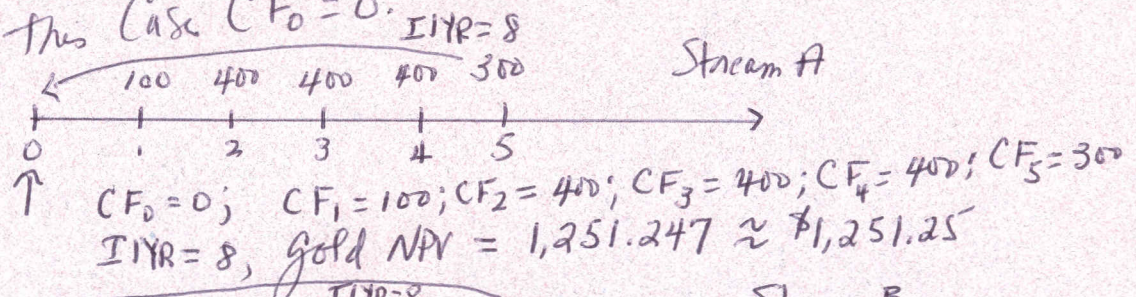 This Case CF₀ = 0.
I/YR = 8
100 400 400 400 300 Stream A
0 1 2 3 4 5
CF₀ = 0; CF₁ = 100; CF₂ = 400; CF₃ = 400; CF₄ = 400; CF₅ = 300
I/YR = 8, gold NPV = 1,251.247 ≈ $1,251.25
I/YR=8